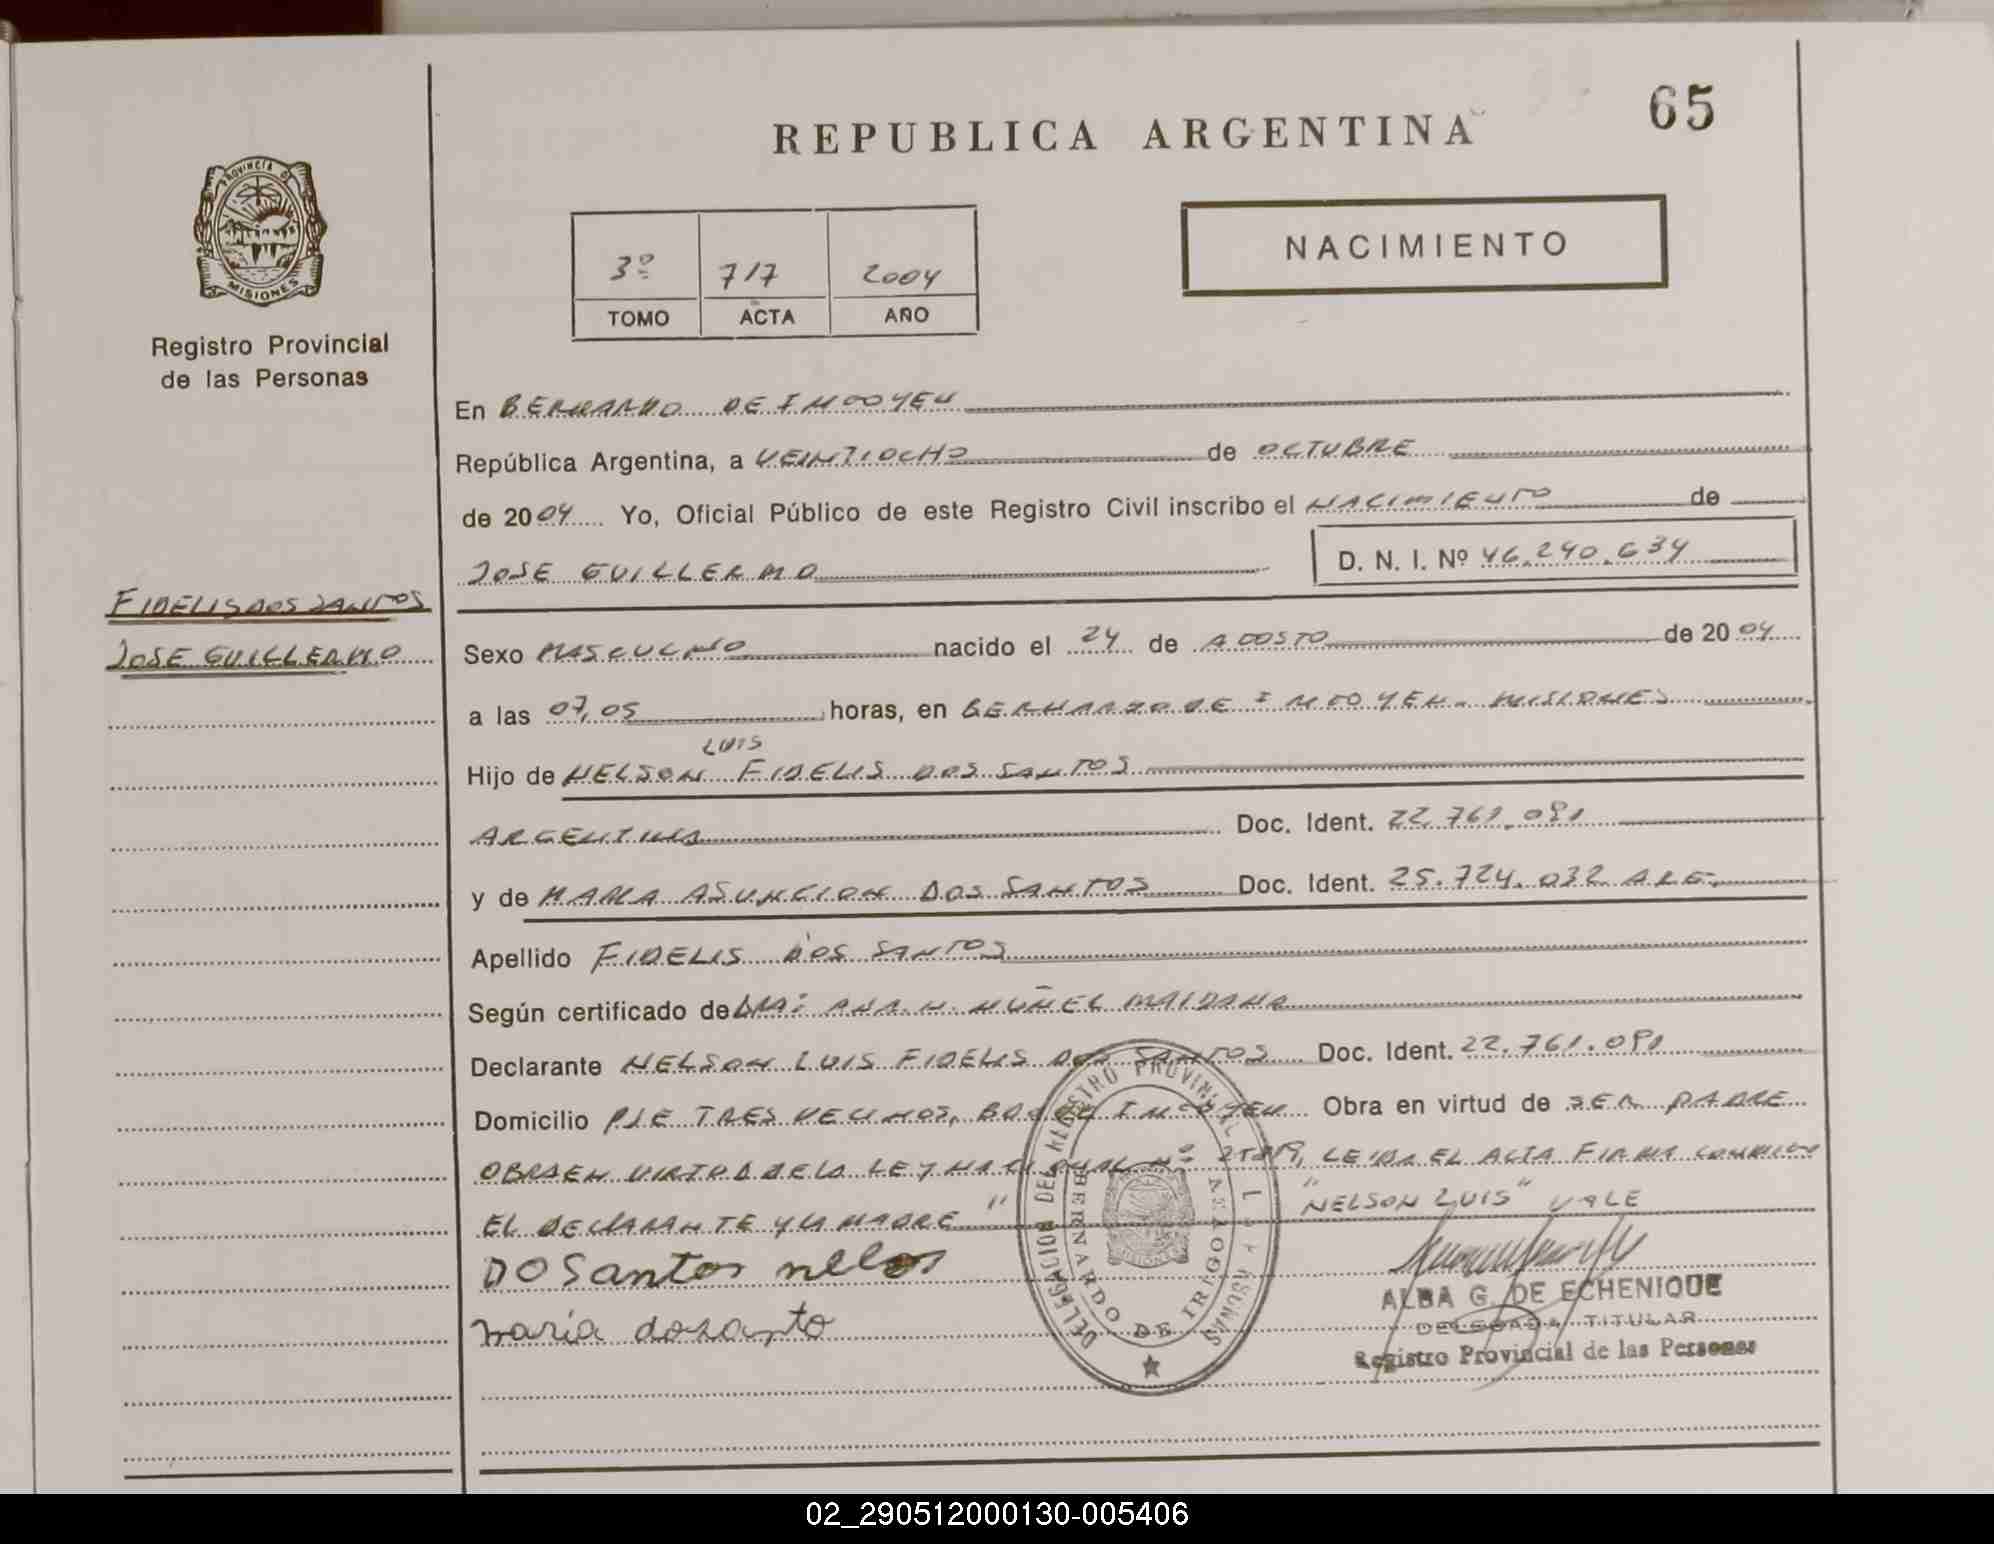 65
REPUBLICA ARGENTINA
PROVINCIA DE
MISIONES
Registro Provincial
de las Personas
3º 717 2004
TOMO ACTA AÑO
NACIMIENTO
En BERNARDO DE IRIGOYEN
República Argentina, a VEINTIOCHO de OCTUBRE
de 2004 Yo, Oficial Público de este Registro Civil inscribo el NACIMIENTO de
JOSE GUILLERMO D. N. I. Nº 46.240.634
FIDELIS DOS SANTOS
JOSE GUILLERMO
Sexo MASCULINO nacido el 24 de AGOSTO de 2004
a las 07,05 horas, en BERNARDO DE IRIGOYEN - MISIONES
LUIS
Hijo de NELSON FIDELIS DOS SANTOS
ARGENTINA Doc. Ident. 22.761.081
y de MARIA ASUNCION DOS SANTOS Doc. Ident. 25.724.032 ARG.
Apellido FIDELIS DOS SANTOS
Según certificado de DRA: ANA. N. NUÑEZ MAIDANA
Declarante NELSON LUIS FIDELIS DOS SANTOS Doc. Ident. 22.761.081
Domicilio PJE TRES VECINOS, BDO DE IRIGOYEN Obra en virtud de SER PADRE
OBRA EN VIRTUD DE LA LEY NACIONAL Nº LEIDA EL ACTA FIRMA CONMIGO
EL DECLARANTE Y LA MADRE " "NELSON LUIS" VALE
DOSantos
maria dosanto
DELEGACION DEL REGISTRO PROVINCIAL DE LAS PERSONAS
BERNARDO DE IRIGOYEN
ALBA G. DE ECHENIQUE
DELEGADA TITULAR
Registro Provincial de las Personas
02_290512000130-005406